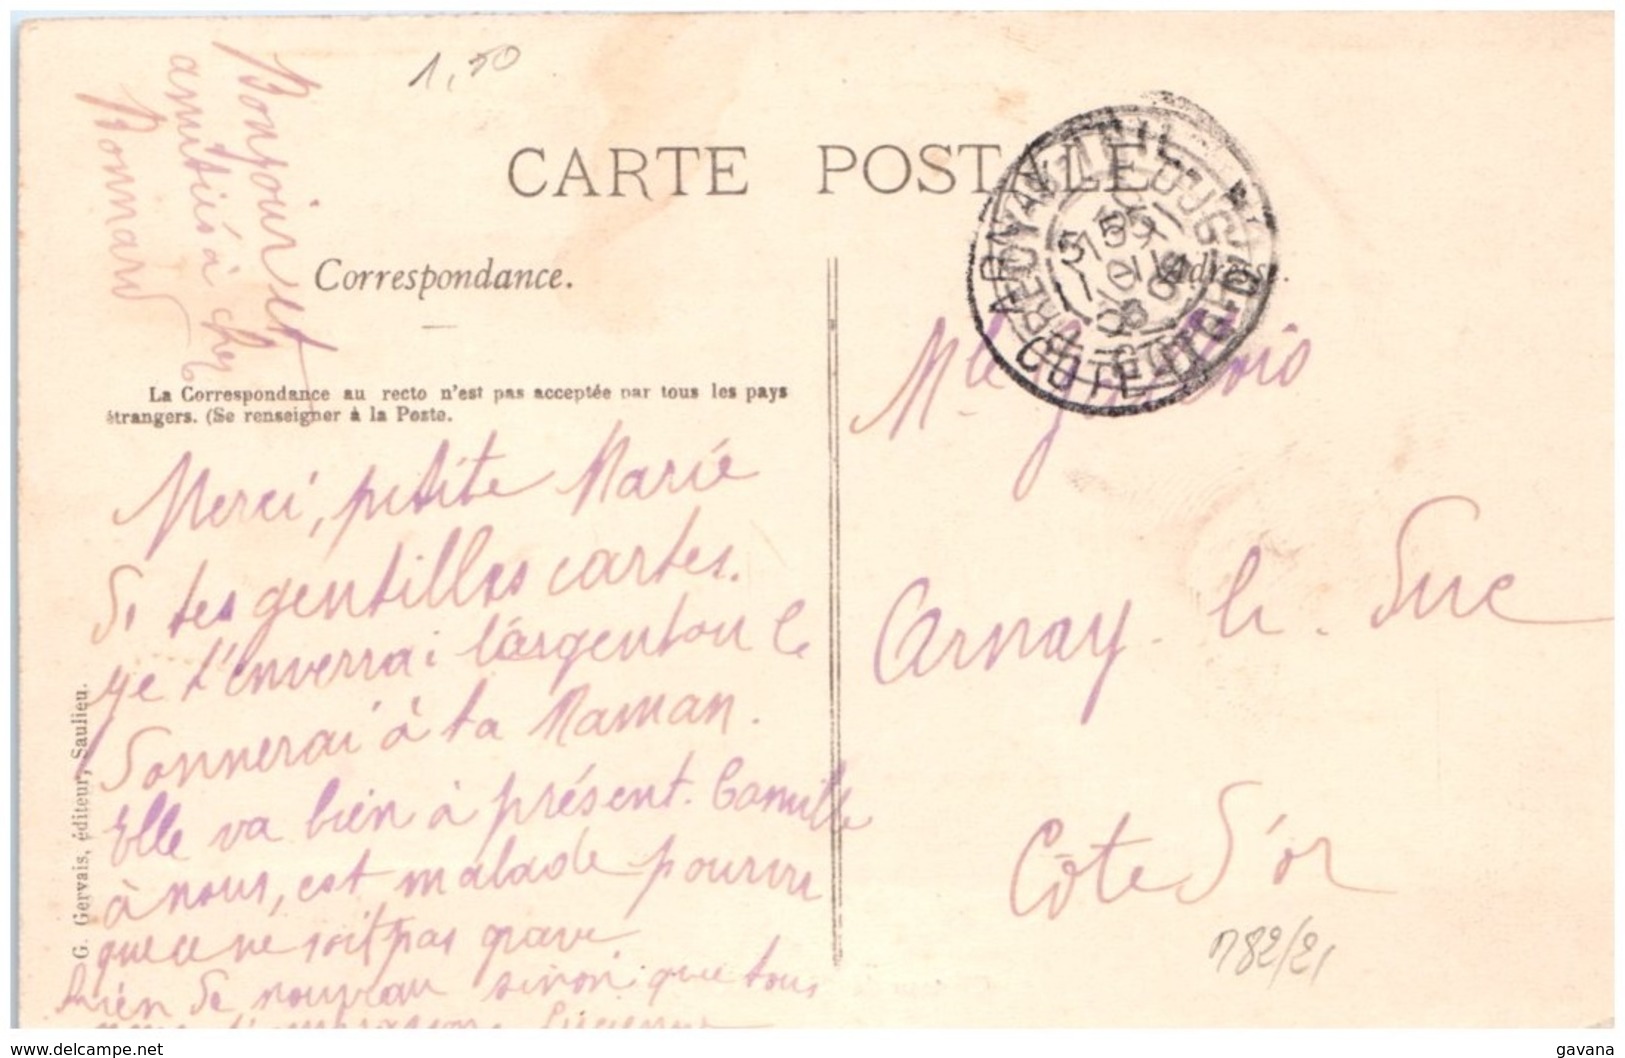 Bonjour et
amitiés à chez
Bonnard
1,50
CARTE POSTALE
Correspondance.
Adresse.
La Correspondance au recto n'est pas acceptée par tous les pays
étrangers. (Se renseigner à la Poste.
ARNAY-LE-DUC
COTE-D'OR
Merci, petite Marie
De tes gentilles cartes.
je t'enverrai l'argent ou le
donnerai à ta Maman.
Elle va bien à présent. Camille
à nous, est malade pourvu
que ce ne soit pas grave.
Rien de nouveau sinon que tous
nous t'embrassons. Lucienne
Mlle
Arnay-le-Duc
Côte d'or
782/21
G. Gervais, éditeur, Saulieu.
www.delcampe.net
gavana